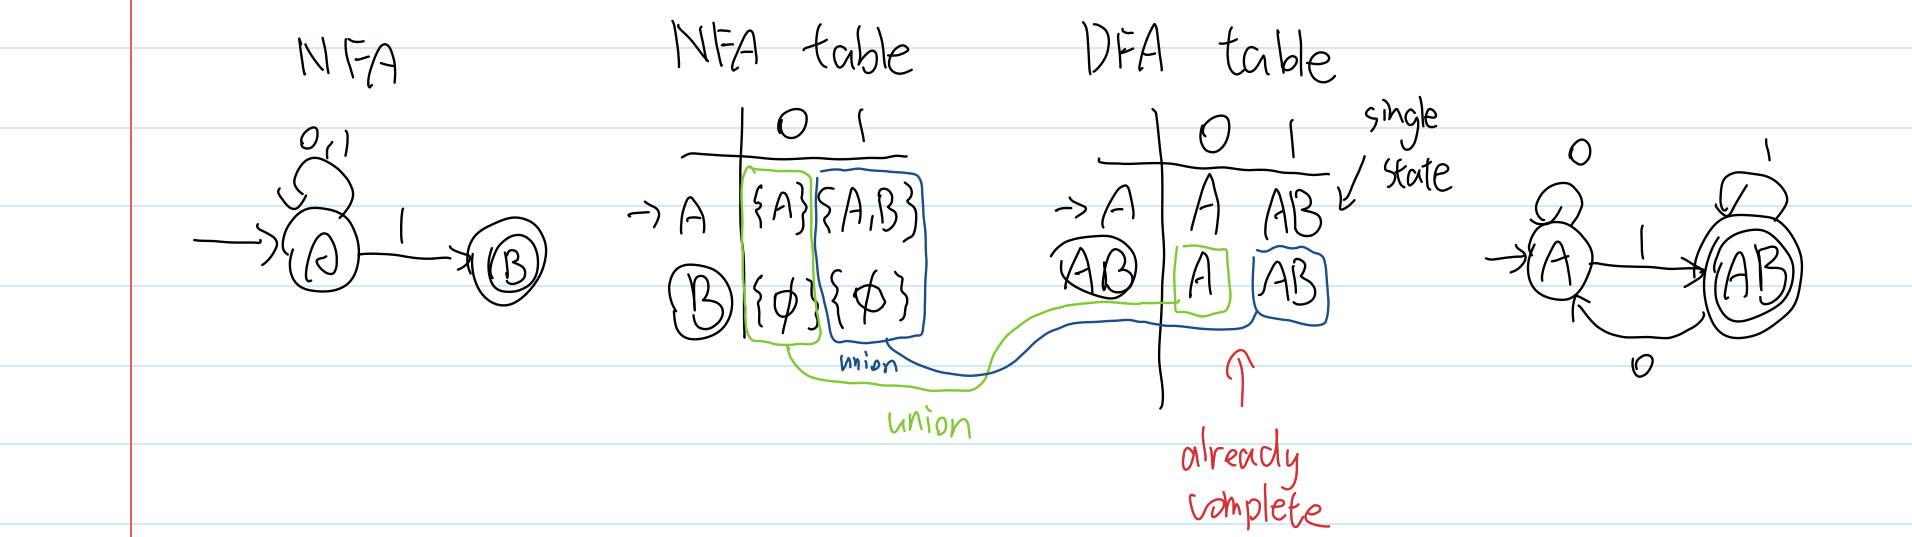 NFA
0,1
A
1
B
NFA table
0 1
→ A {A} {A,B}
B {ϕ} {ϕ}
union
union
DFA table
0 1
→ A A AB
AB A AB
single
state
already
complete
0
1
A
1
AB
0